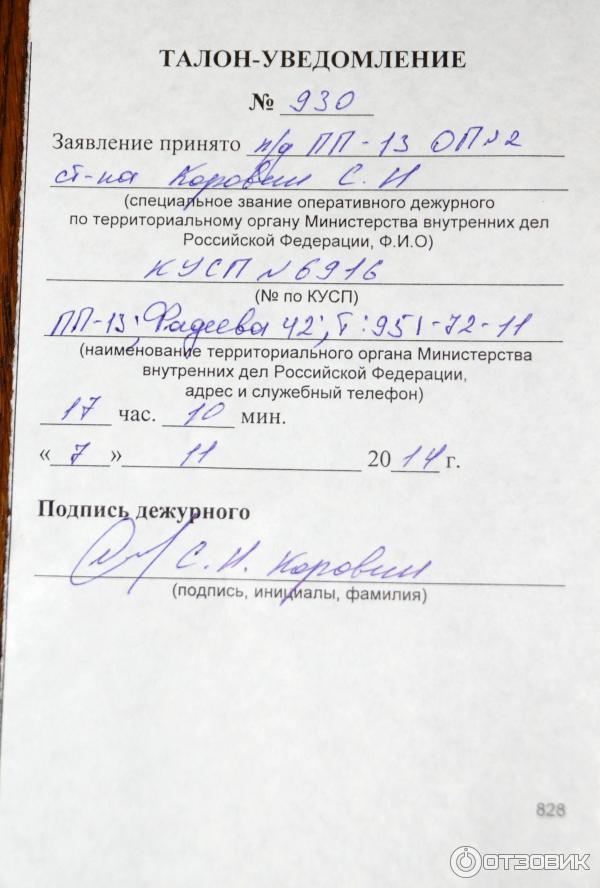 ТАЛОН-УВЕДОМЛЕНИЕ
№ 930
Заявление принято п/д ПП-13 ОП№2
ст-на Коровин С. И
(специальное звание оперативного дежурного
по территориальному органу Министерства внутренних дел
Российской Федерации, Ф.И.О)
КУСП №6916
(№ по КУСП)
ПП-13; Фадеева 42; т: 951-72-11
(наименование территориального органа Министерства
внутренних дел Российской Федерации,
адрес и служебный телефон)
17 час. 10 мин.
«7» 11 2014 г.
Подпись дежурного
С. И. Коровин
(подпись, инициалы, фамилия)
828
ОТЗОВИК